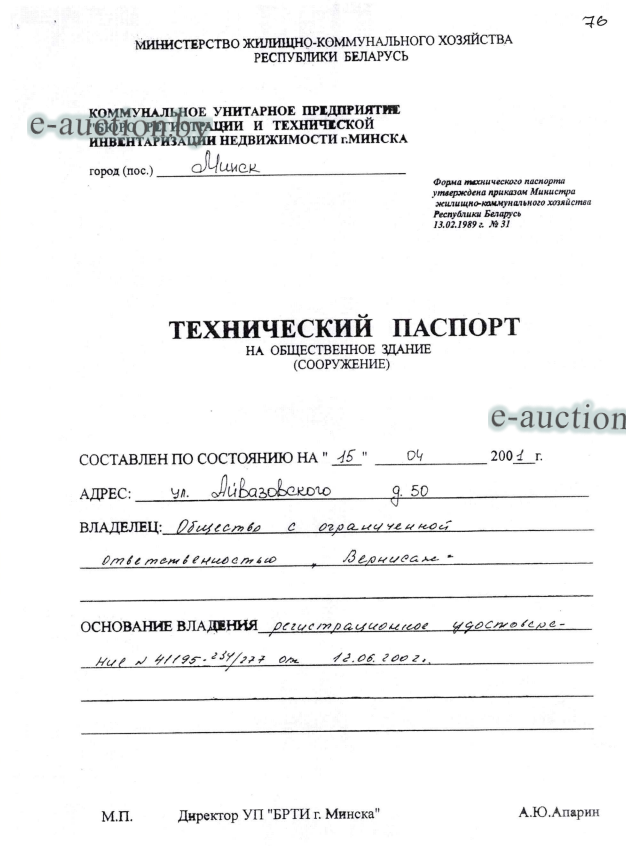 76
МИНИСТЕРСТВО ЖИЛИЩНО-КОММУНАЛЬНОГО ХОЗЯЙСТВА
РЕСПУБЛИКИ БЕЛАРУСЬ
КОММУНАЛЬНОЕ УНИТАРНОЕ ПРЕДПРИЯТИЕ
e-auction.by
"БЮРО РЕГИСТРАЦИИ И ТЕХНИЧЕСКОЙ
ИНВЕНТАРИЗАЦИИ НЕДВИЖИМОСТИ г.МИНСКА
город (пос.) Минск
Форма технического паспорта
утверждена приказом Министра
жилищно-коммунального хозяйства
Республики Беларусь
13.02.1989 г. № 31
ТЕХНИЧЕСКИЙ ПАСПОРТ
НА ОБЩЕСТВЕННОЕ ЗДАНИЕ
(СООРУЖЕНИЕ)
e-auction
СОСТАВЛЕН ПО СОСТОЯНИЮ НА " 15 " 04 2001 г.
АДРЕС: ул. Айвазовского д. 50
ВЛАДЕЛЕЦ: Общество с ограниченной
ответственностью „Вернисаж"
ОСНОВАНИЕ ВЛАДЕНИЯ регистрационное удостовере-
ние N 41195-234/277 от 12.06.2002г.
М.П. Директор УП "БРТИ г. Минска" А.Ю.Апарин